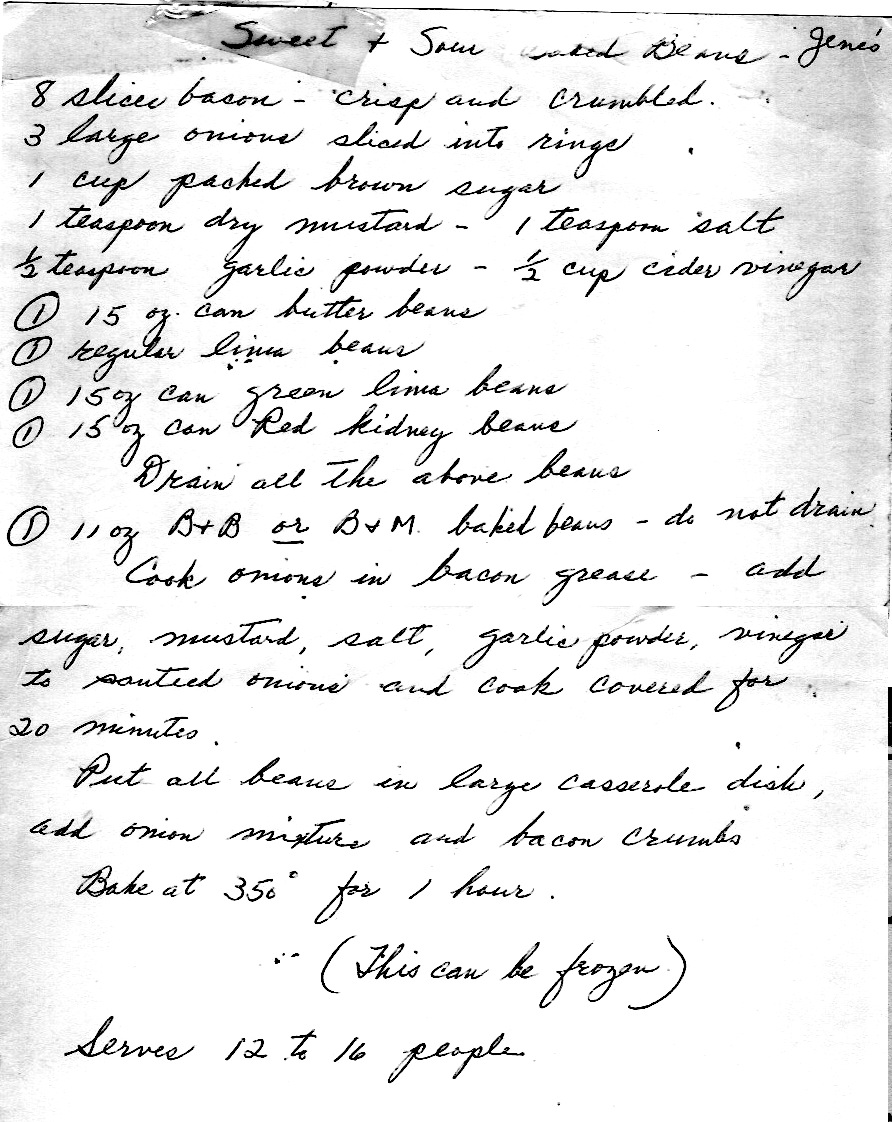 Sweet + Sour Baked Beans - Jene's
8 slices bacon - crisp and crumbled.
3 large onions sliced into rings
1 cup packed brown sugar
1 teaspoon dry mustard - 1 teaspoon salt
½ teaspoon garlic powder - ½ cup cider vinegar
① 15 oz. can butter beans
① regular lima beans
① 15 oz can green lima beans
① 15 oz can Red kidney beans
Drain all the above beans
① 11 oz B+B or B+M baked beans - do not drain.
Cook onions in bacon grease - add
sugar, mustard, salt, garlic powder, vinegar
to sauteed onions and cook covered for
20 minutes.
Put all beans in large casserole dish,
add onion mixture and bacon crumbs
Bake at 350° for 1 hour.
(This can be frozen)
Serves 12 to 16 people